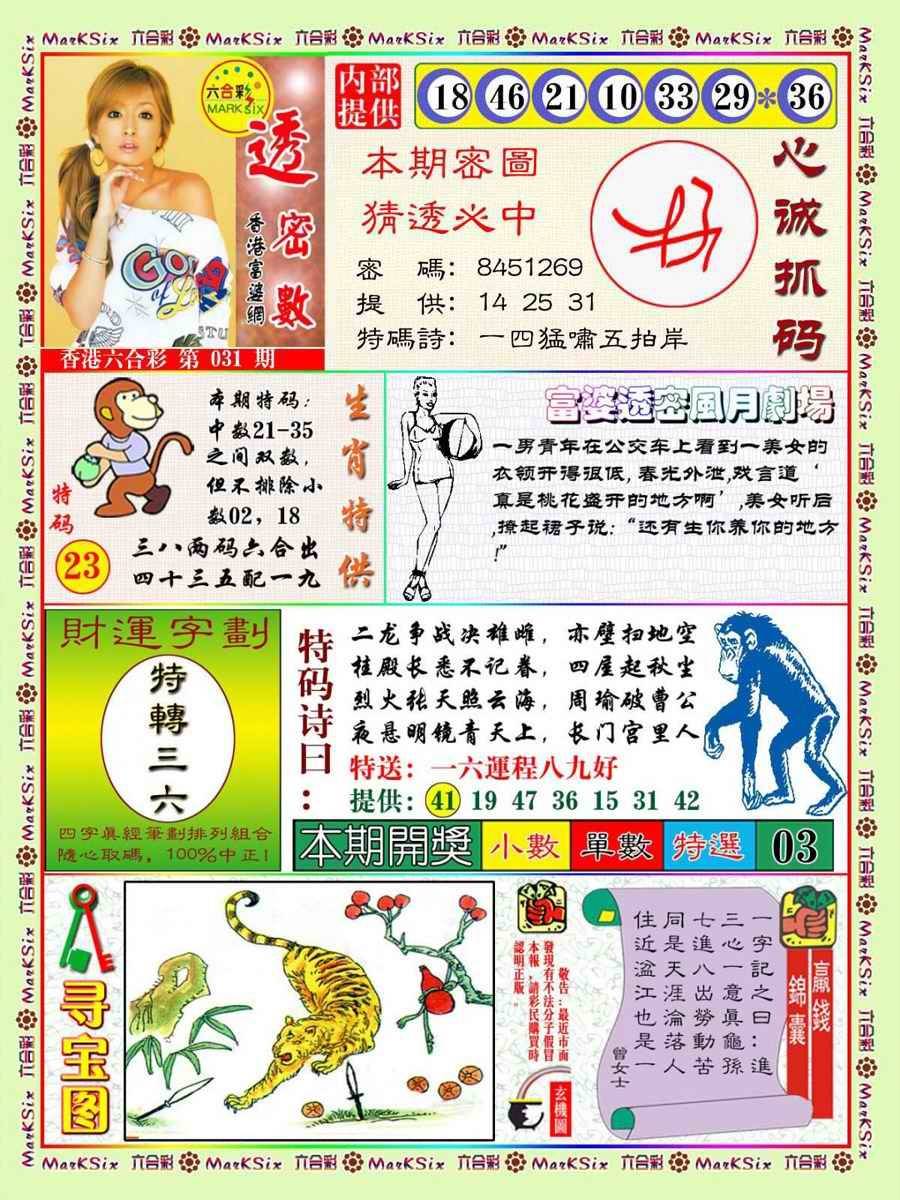 MarKSix 六合彩 MarKSix 六合彩 MarKSix 六合彩 MarKSix 六合彩 MarKSix 六合彩
六合彩
MARK Six
透密數
香港富婆網
香港六合彩 第 031 期
内部
提供
18 46 21 10 33 29 * 36
本期密圖
猜透必中
密 碼: 8451269
提 供: 14 25 31
特碼詩: 一四猛嘯五拍岸
心诚抓码
本期特码:
中数21-35
之间双数,
但不排除小
数02, 18
三八两码六合出
四十三五配一九
特码
23
生肖特供
富婆透密風月劇場
一男青年在公交车上看到一美女的
衣领开得很低,春光外泄,戏言道‘
真是桃花盛开的地方啊’,美女听后
,撩起裙子说:“还有生你养你的地方
!”
財運字劃
特轉三六
四字真經筆劃排列組合
隨心取碼, 100%中正!
特码诗曰:
二龙争战决雄雌, 赤壁扫地空
桂殿长愁不记春, 四屋起秋尘
烈火张天照云海, 周瑜破曹公
夜悬明镜青天上, 长门宫里人
特送: 一六運程八九好
提供: 41 19 47 36 15 31 42
本期開獎 小數 單數 特選 03
寻宝图
敬告:最近市面
發現有不法分子假冒
本報,請彩民購買時
認明正版。
玄機圖
一字記之曰:進
三心一意真龜孫
七進八出勞動苦
同是天涯淪落人
住近湓江也是一
曾女士
贏錢
錦囊
MarKSix 六合彩 MarKSix 六合彩 MarKSix 六合彩 MarKSix 六合彩 MarKSix 六合彩